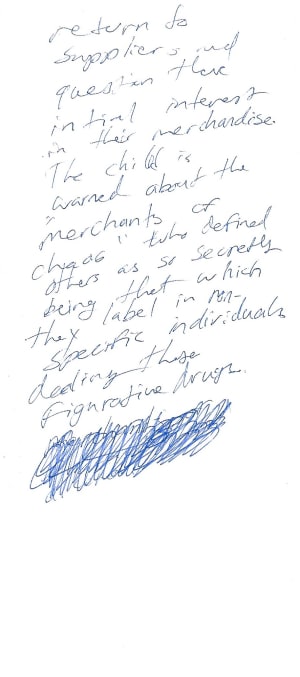 return to
suppliers and
question there
intial interest
in their merchandise.
The child is
warned about the
"merchants of
chaos" who defined
others as so secretly
being that which
they label in non-
specific individuals
dealing these
figurative drugs.